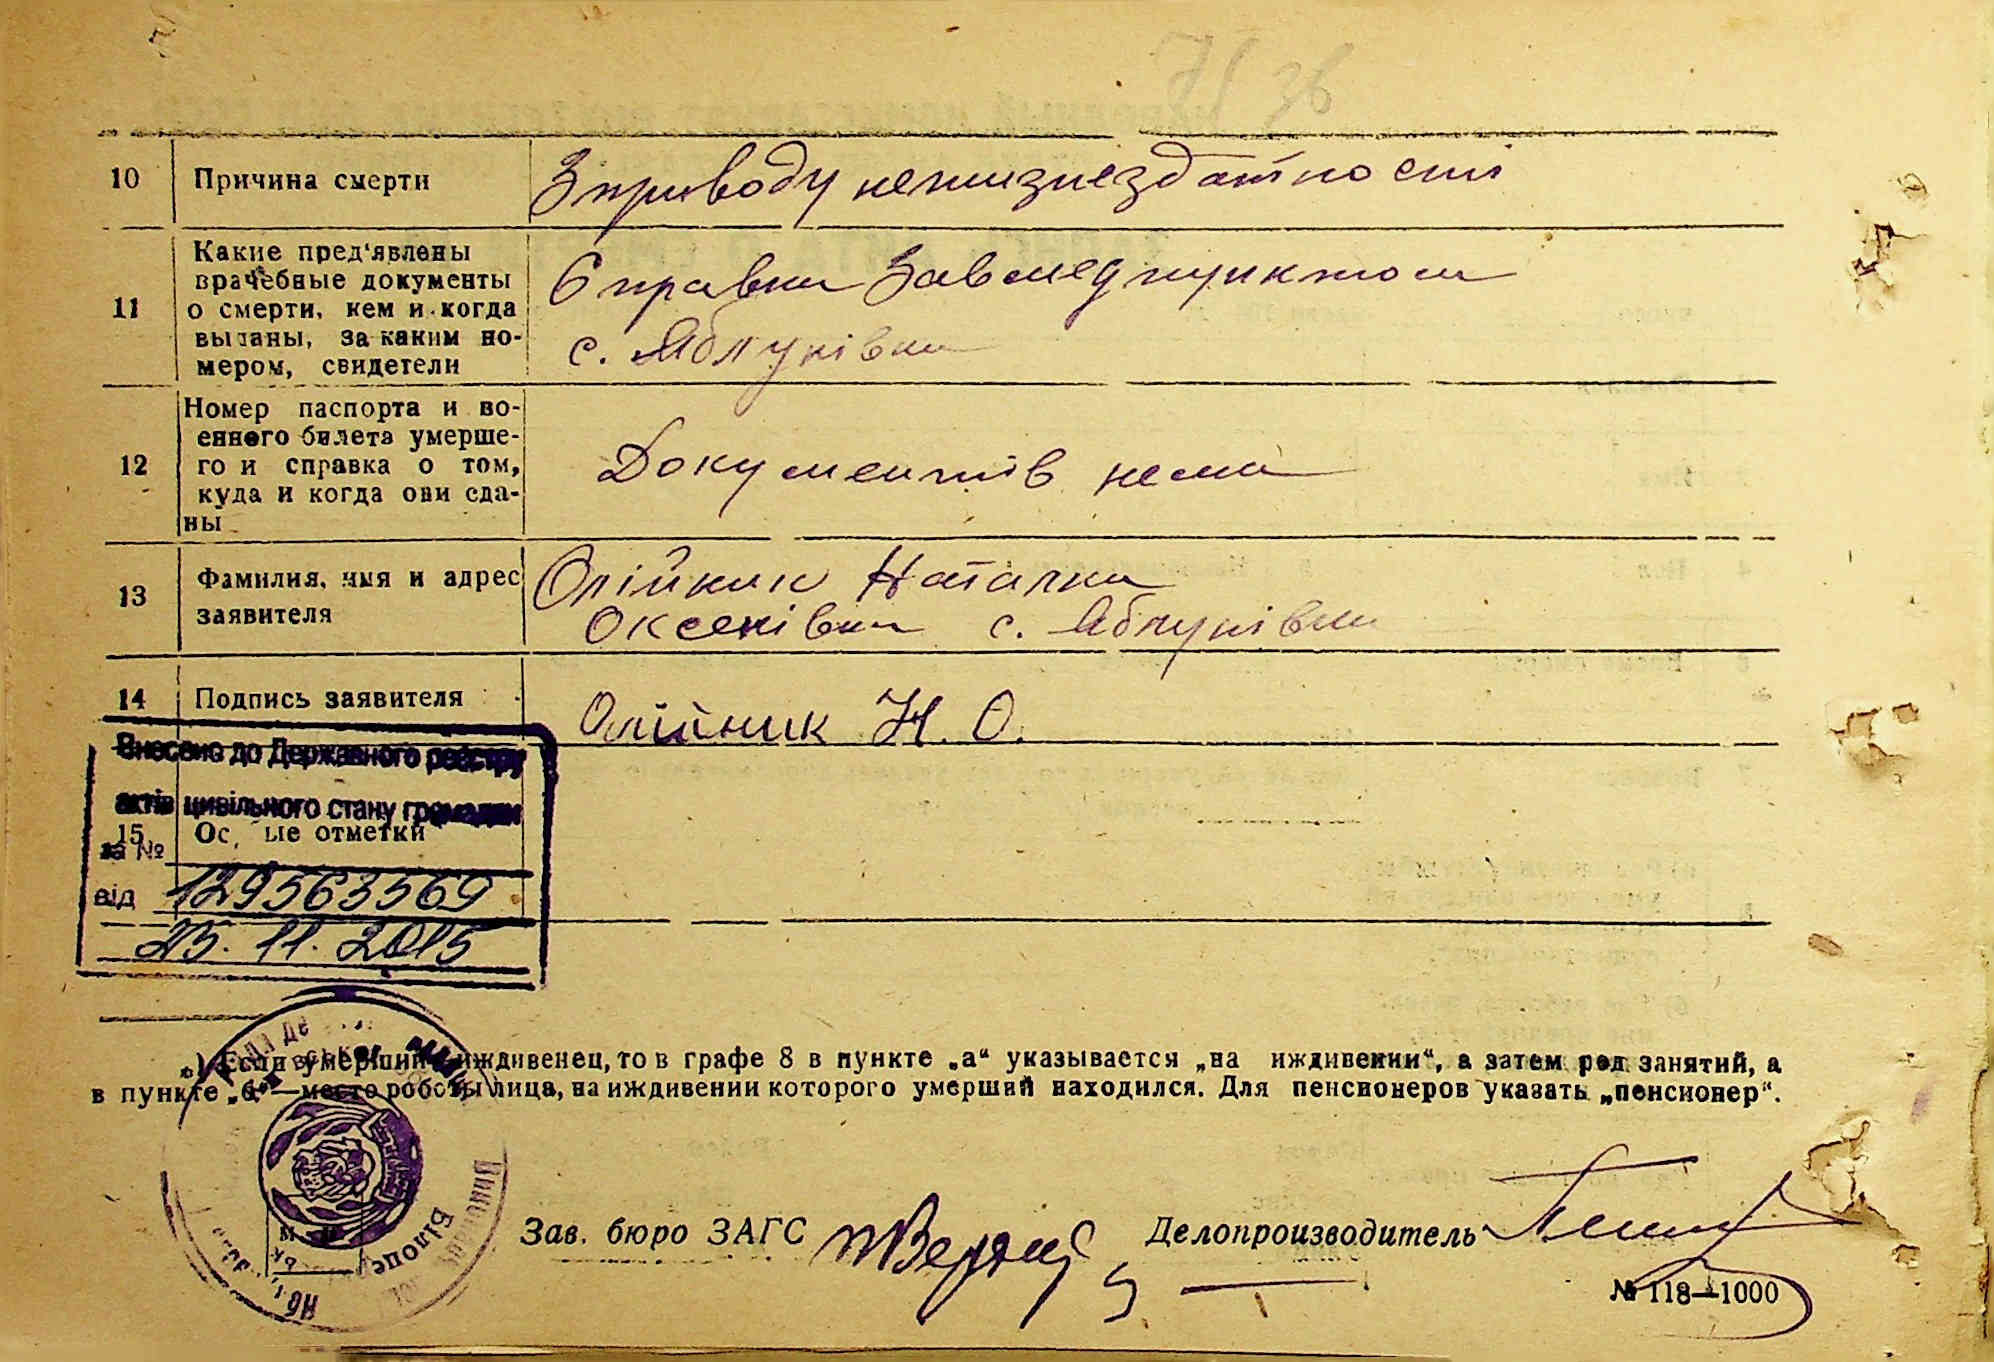 10 Причина смерти З приводу нежизнездатности
11 Какие пред'явлены
врачебные документы
о смерти, кем и когда
выданы, за каким но-
мером, свидетели
Справка Завмедпунктом
с. Яблунівка
12 Номер паспорта и во-
енного билета умерше-
го и справка о том,
куда и когда они сда-
ны
Документів нема
13 Фамилия, имя и адрес
заявителя
Олійник Наталка
Оксенівна с. Яблунівка
14 Подпись заявителя Олійник Н. О.
Внесено до Державного реєстру
актів цивільного стану громадян
15 Ос ые отметки
за №
від 129563569
25.11.2015
Если умерший иждивенец, то в графе 8 в пункте „а“ указывается „на иждивении“, а затем род занятий, а
в пункте „б“—место роботы лица, на иждивении которого умерший находился. Для пенсионеров указать „пенсионер“.
Зав. бюро ЗАГС Делопроизводитель
№ 118—1000